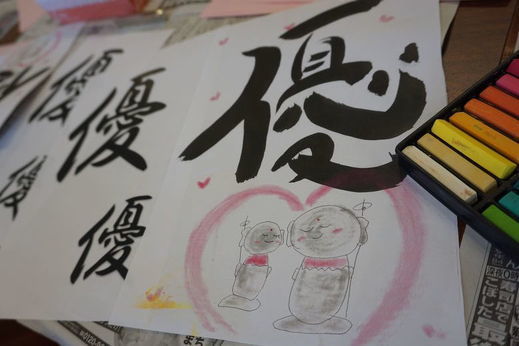 優
優
優
優
優